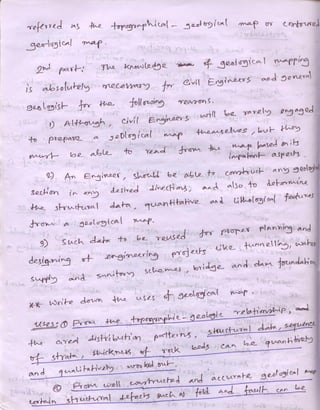 referred as the topographical - geological map or contoured
geological map.
2nd part: The knowledge of geological mapping
is absolutely necessary for Civil Engineers and general
geologist for the following reasons.
1) Although, Civil Engineers will be rarely engaged
to prepare a geological map themselves, but they
must be able to read from the map based on its
important aspects.
2) An Engineer, should be able to construct any geological
section in any desired directions, and also to determine
the structural data, quantitative and lithological features
from a geological map.
3) Such data to be reused for proper planning and
designing of engineering projects like tunnelling, water
supply and sanitary schemes, bridge and dam foundation
** Write down the uses of geological map.
Uses: ① From the topographic - geologic relationship, and
the areal distribution patterns, structural data, sequence
of strata, thickness of rock beds can be quantitatively
and qualitatively worked out.
② From well constructed and accurate geological map
certain structural defects such as fold and fault can be